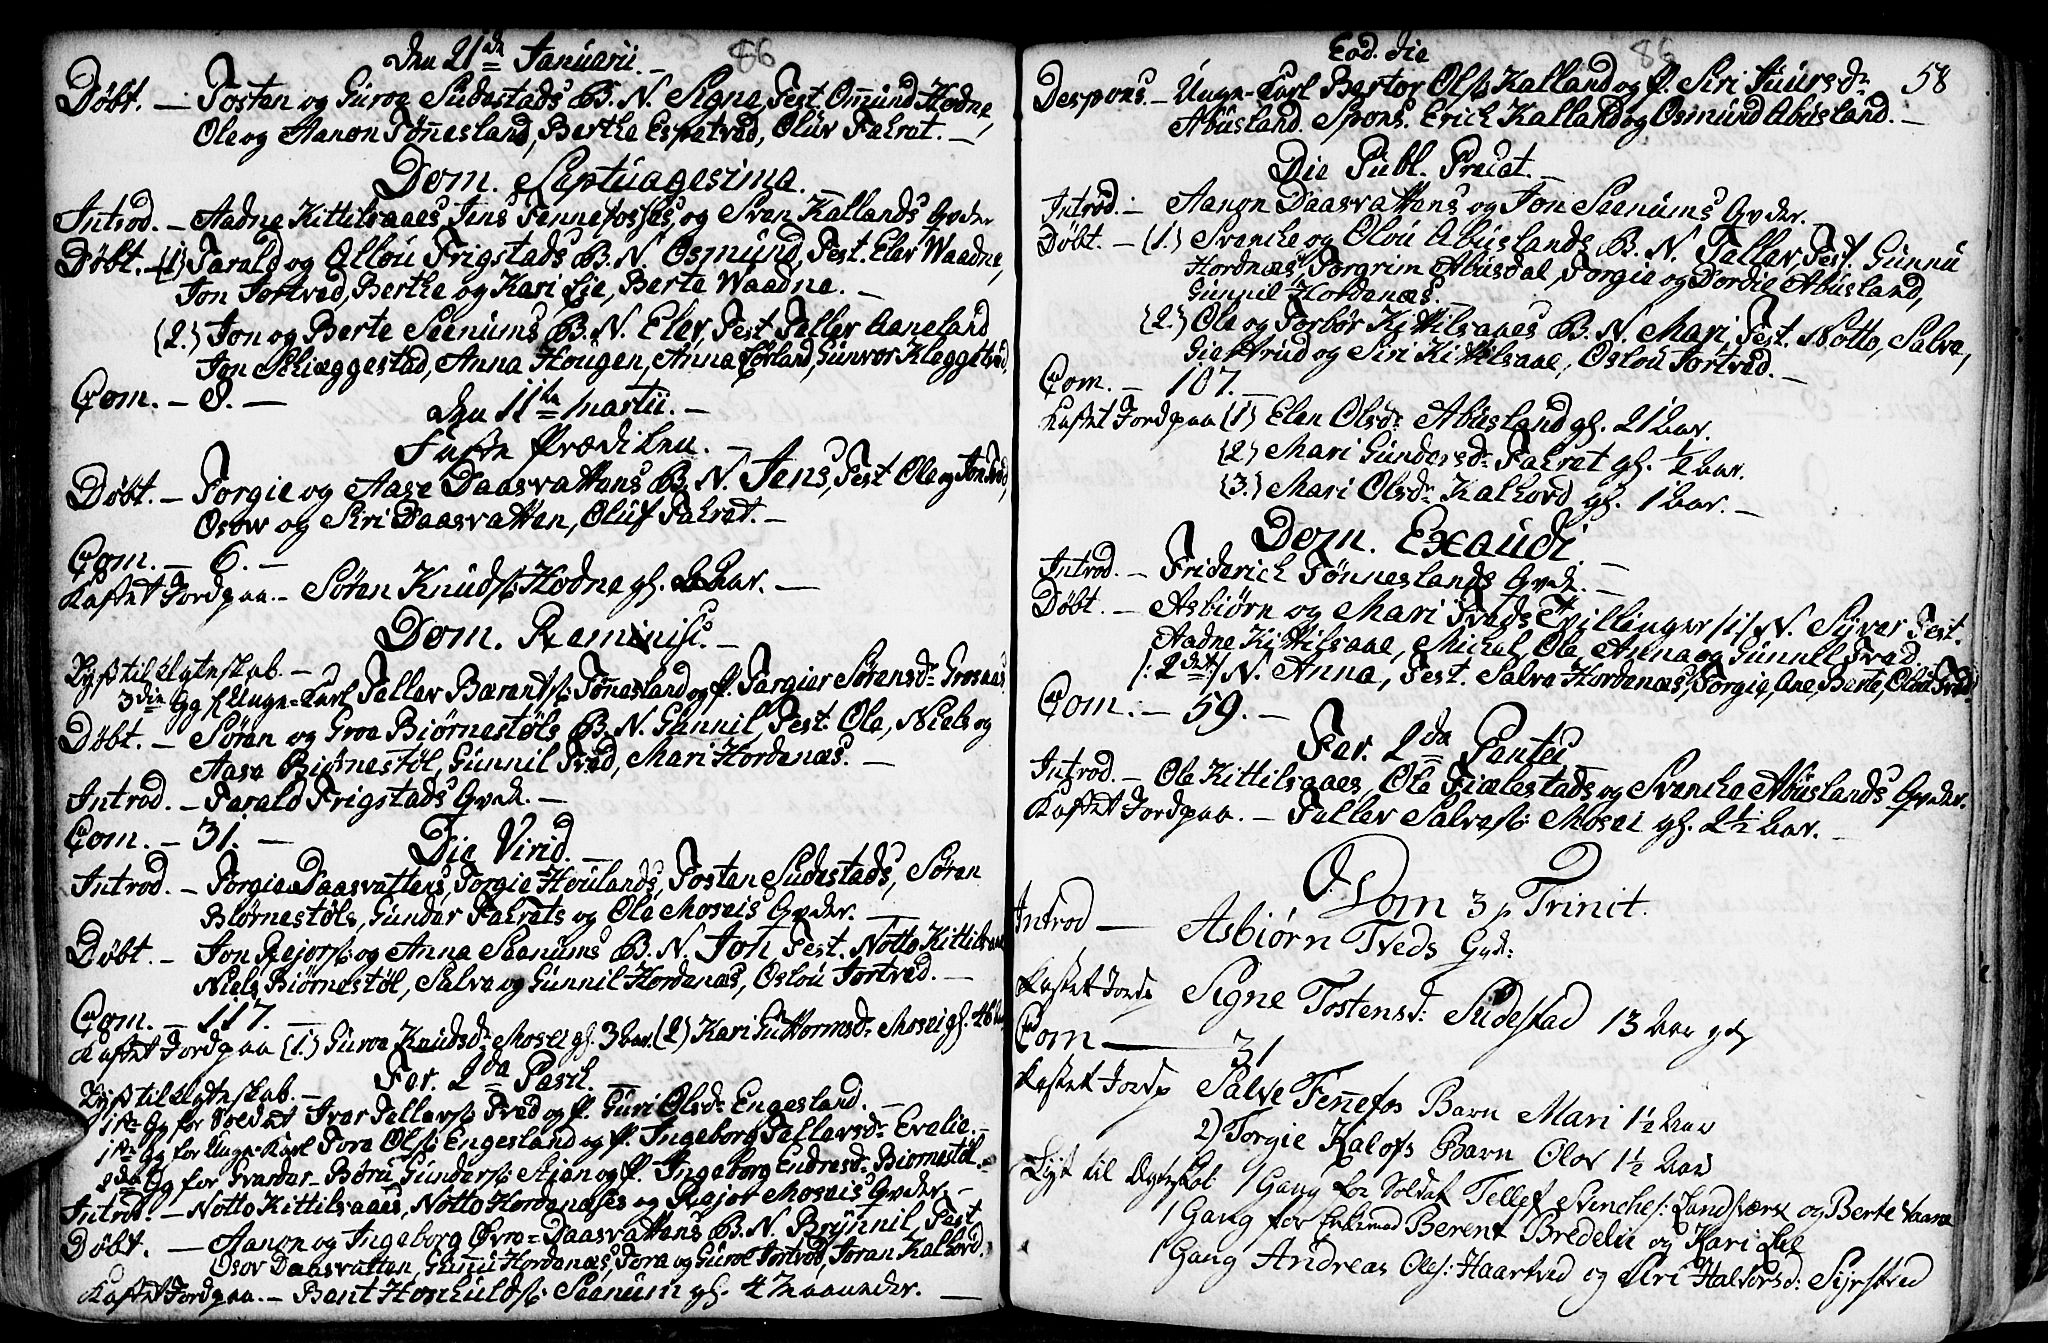 86
den 21de Januarii. –
Døbt. – Tosten og Guroe Sudestads B. N. Signe, Test. Omund Hodne,
Ole og Aanon Tønnesland, Berthe Espetved, Oluv Fahret. –
Dom. Septuagesima.
Introd. – Aadne Kittilsaaes, Jens Fennefosses, og Sven Kallands Qvder.
Døbt. – (1) Tarald og Allou Frigstads B. N. Osmund, Test. Elev Waadne,
Jon Tortved, Berthe og Kari Lie, Berte Waadne. –
(2.) Jon og Berte Seenums B. N. Elev, Test. Teller Aaneland
Jon Skieggestad, Anna Hougen, AnnaØrland, Gunvor Kleggetved.
Com. – 8. –
den 11te Martii. –
Faste Prædiken. –
Døbt. – Torgie og Aase Daasvattens B. N. Jens, Test Ole og Jon Tved,
Osow og Siri Daasvatten, Oluf Fahret. –
Com. – 6. –
Kastet Jord paa. – Søren Knuds: Hodne gl. 2 Aar. –
Dom. Reminisc. –
Lyst til Egtenskab. –
3die Gg f. Unge-Karl Teller Barents: Tønnesland og P. Targier Sørensdr Grosaas
Døbt. – Søren og Groe Biørnestøls B. N. Gunnil, Test. Ole, Niels og
Aase Biørnestøl, Gunnil Tved, Mari Hordenæs. –
Introd. – Tarald Frigstads Qvde. –
Com. – 31. –
Die Virid. –
Introd. – Torgie Daasvattens, Torgie Høulands, Tosten Sudestads, Søren
Biørnestøls, Gunder Fahrets og Ole Moseis Qvder. –
Døbt. – Jon Rejers: og Anna Seenums B. N. Jon Test. Notto Kittilsaae
Niels Biørnestøl, Salve og Gunnil Hordenæs, Oslou Tortved. –
Com. – 117. –
Kastet Jord paa (1.) Guroe Knudsdr Mosei gl. 3 Aar. (2) Kari Guttormsdr Mosei gl. 48 Aar
Fer. 2da Pasch. –
Lyst til Egtenskab. –
1ste Gg for Soldat Iver Tellers: Tved og P. Guri Olsdr Engesland. –
1ste Gg for Unge-Karl Tore Ols: Engesland og P. Ingeborg Tellersdr Evelie. –
2den Gg for Gunders: og P. Ingeborg Endresdr Biørnestøl. –
Introd. – Notto Kittilsaaes, Notto Hordenæses og Rejer Moseis Qvder. –
Døbt. – Aanon og Ingeborg Øvre-Daasvattens B. N. Brynnil, Test
Osov Daasvatten, Gunnu Hordenæs, Tore og Guroe Tortved, Joran Kalhovd.
Kastet Jord paa. – Bent Honhulds: Seenum gl. 4 Maaneder. –
Eod. die
58
Despons. – Unge-Karl Bertor Ols: Kalland og P. Siri Juursdr
Abusland. Spons. Erich Kalland og Osmund Abusland. –
Die Publ. Precat. –
Introd. – Aanon Daasvattens og Jon Seenums Qvder.
Døbt. – (1.) Svenche og Olou Abuslands B. N. Teller, Test. Gunnu
Hordnæs, Torgrim Abusdal, Torgie og Dordie Abusland,
Gunnil Hordenæs.
(2.) Ole og Torbør Kittilsaaes B. N. Mari, Test. Notto, Salve,
og Siri Kittilsaae, Oslou Tortved. –
Com. – 107. –
Kastet Jord paa (1) Elen Olsdr Abusland gl. 21 Aar.
(2) Mari Gundersdr Fahret gl. ½ Aar.
(3.) Mari Olsdr Kalhovd gl. 1 Aar. –
Dom. Exaudi –
Introd. – Friderich Tønneslands Qvde. –
Døbt. – Asbiørn og Mari Tveds Tvillinger /:1:/ N. Syver Test.
Aadne Kittilsaae, Michel, Ole Anna og Gunnil Tved.
/: 2den :/ N. Anna, Test. Salve Hordenæs, Torgie, Ane, Berte, Olou Tved
Com. – 59. –
Fer. 2da Pentec. –
Introd. – Ole Kittilsaaes, Ole Fielestads og Svenche Abuslands Qvder.
Kastet Jord paa. – Teller Salves: Mosei gl. 2½ Aar. –
Dom 3 p Trinit.
Introd — Asbiørn Tveds Qvd:
Kastet Jord p Signe Tostensd: Sudestad 13 Aar gl
Com — 31
Kastet Jord p Salve Fennefos Barn Mari 1½ Aar
2) Torgie Kalofs Barn Olov 1½ Aar
Lyst til Ægteskab 1 Gang for Soldat Tellef Svinches: Landsværk og Berte
1 Gang for Enkemand Berent Bredelie og Kari Lie
1 Gang Andreas Oles: Haartved og Siri Halvorsd: Syrtved